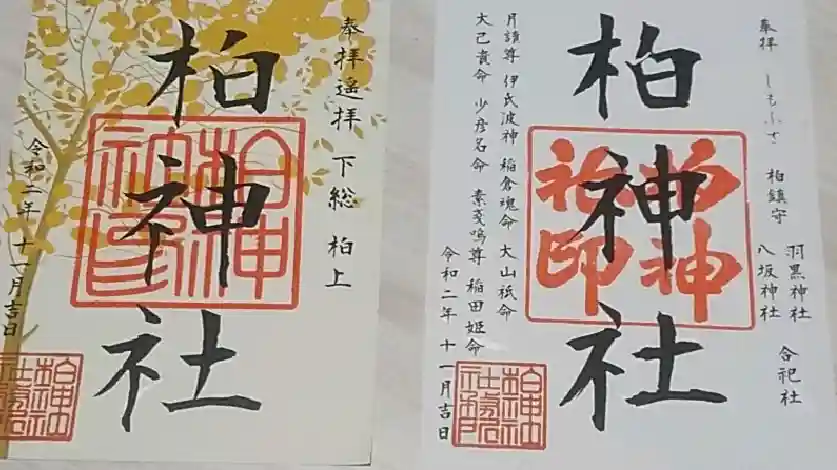 奉拝遥拝 下総 柏上
柏神社
令和二年 十一月吉日
奉拝 しもふさ 柏鎮守
羽黒神社
八坂神社
合祀社
柏神社
柏神社印
月讀尊 伊氐波神 稲倉魂命 大山祇命
大己貴命 少彦名命 素戔嗚尊 稲田姫命
令和二年 十一月吉日